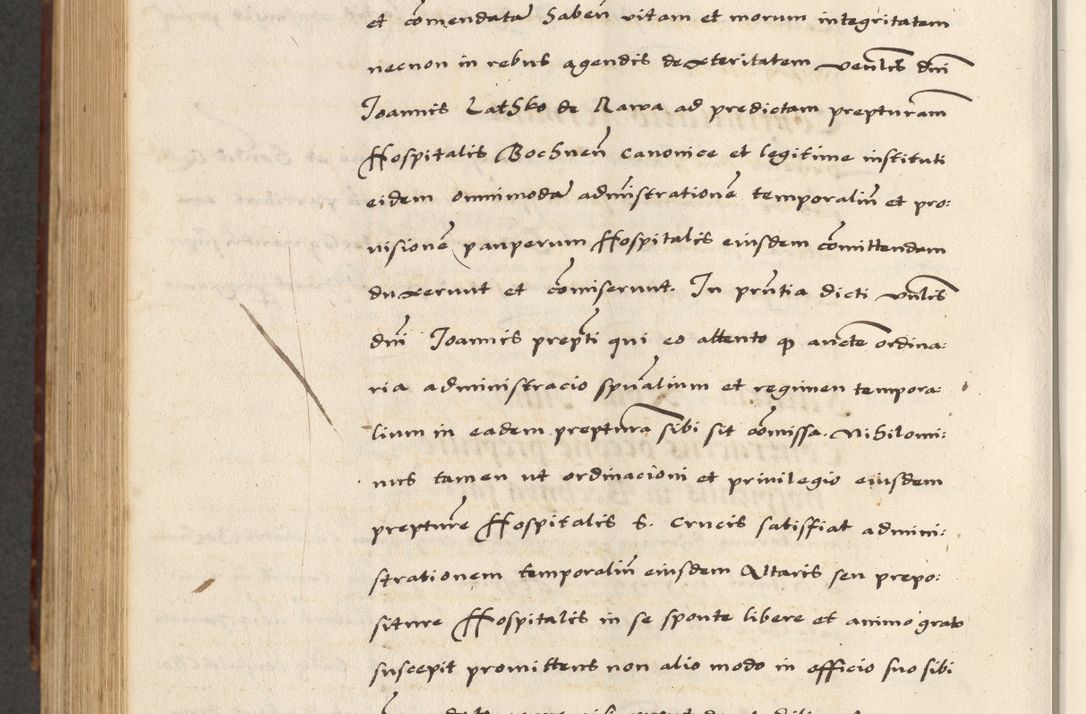 et comendata haben vitam et morum integritatem
necnon in rebus agendis dexteritatem venlis dni
Joannis Lathko de Rawa ad predictam prepturam
Hospitalis Bochnen canonice et legitime instituti
eidem omnimoda administratione temporaliu et pro:
uisione pauperum Hospitalis eiusdem comittendam
duxerunt et comiserunt. In prntia dicti vnlis
dni Joannis prepti qui eo attento q aucte ordina:
ria administracio spualium et regimen tempora:
lium in eadem preptura sibi sit comissa. Nihilomi:
nus tamen ut ordinacioni et privilegio eiusdem
prepture Hospitalis S. Crucis satisfiat admini:
strationem temporaliu eiusdem Altaris seu prepo:
siture Hospitalis in se sponte libere et animo grato
suscepit promittens non alio modo in officio suo sibi